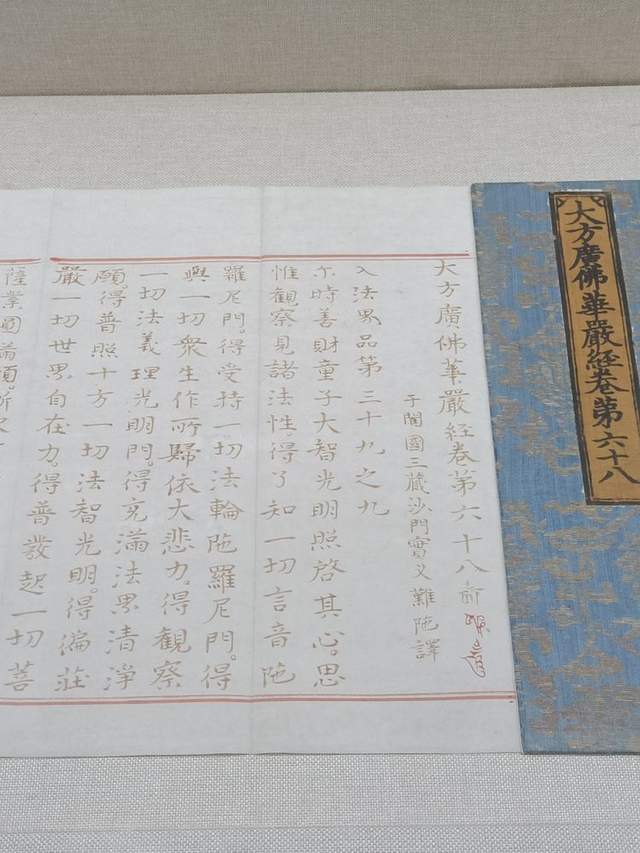 大方廣佛華嚴經卷第六十八
大方廣佛華嚴經卷第六十八
于闐國三藏沙門實叉難陁譯
入法界品第三十九之九
尒時善財童子大智光明照啓其心。思
惟觀察見諸法性。得了知一切言音陁
羅尼門。得受持一切法輪陁羅尼門。得
與一切衆生作所歸依大悲力。得觀察
一切法義理光明門。得充滿法界清淨
願。得普照十方一切法智光明。得徧莊
嚴一切世界自在力。得普發起一切菩
薩業圓滿願。